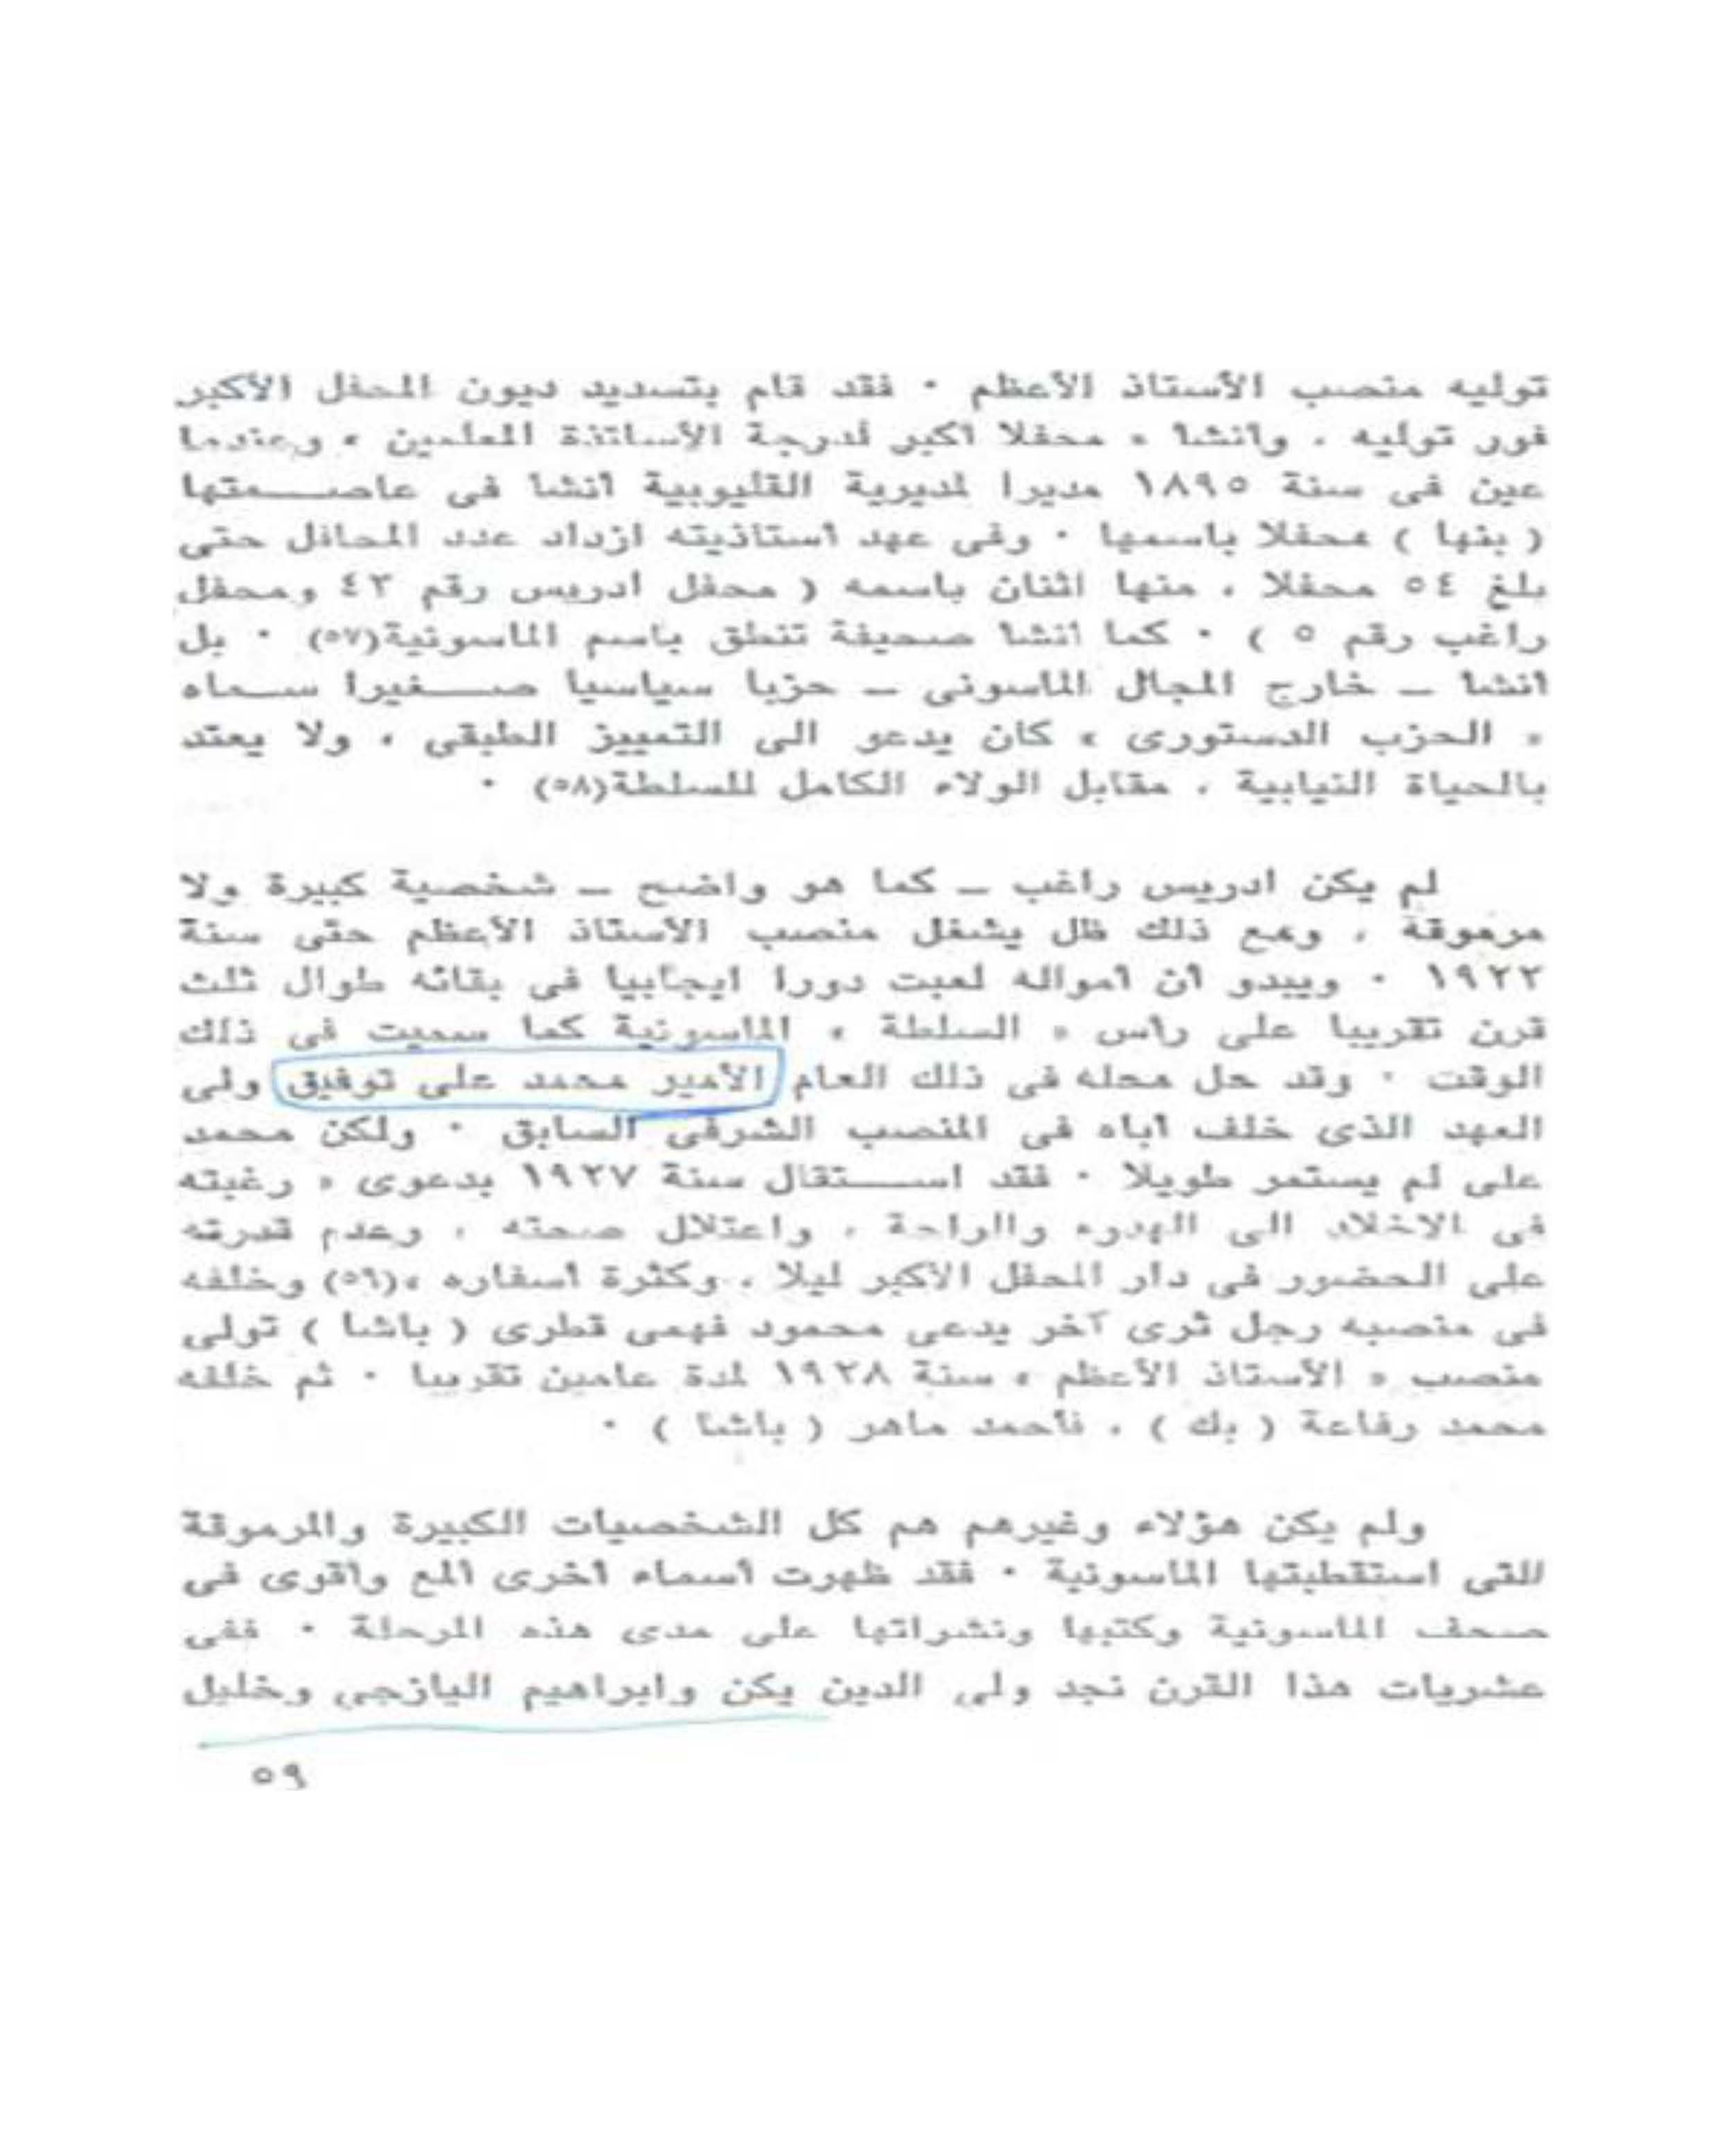 توليه منصب الأستاذ الأعظم ٠ فقد قام بتسديد ديون المحفل الأكبر
فور توليه ، وأنشأ « محفلا أكبر لدرجة الأساتذة المعلمين » وعندما
عين فى سنة ١٨٩٥ مديرا لمديرية القليوبية أنشأ فى عاصمتها
( بنها ) محفلا باسمها ٠ وفى عهد أستاذيته ازداد عدد المحافل حتى
بلغ ٥٤ محفلا ، منها اثنان باسمه ( محفل ادريس رقم ٤٣ ومحفل
راغب رقم ٥ ) ٠ كما أنشأ صحيفة تنطق باسم الماسونية(٥٧) ٠ بل
أنشأ ــ خارج المجال الماسونى ــ حزبا سياسيا صغيرا سماه
« الحزب الدستورى » كان يدعو الى التمييز الطبقى ، ولا يعتد
بالحياة النيابية ، مقابل الولاء الكامل للسلطة(٥٨) ٠
لم يكن ادريس راغب ــ كما هو واضح ــ شخصية كبيرة ولا
مرموقة ، ومع ذلك ظل يشغل منصب الأستاذ الأعظم حتى سنة
١٩٢٢ ٠ ويبدو أن أمواله لعبت دورا ايجابيا فى بقائه طوال ثلث
قرن تقريبا على رأس « السلطة » الماسونية كما سميت فى ذلك
الوقت ٠ وقد حل محله فى ذلك العام الأمير محمد على توفيق ولى
العهد الذى خلف أباه فى المنصب الشرفى السابق ٠ ولكن محمد
على لم يستمر طويلا ٠ فقد استقال سنة ١٩٢٧ بدعوى « رغبته
فى الاخلاد الى الهدوء والراحة ، واعتلال صحته ، وعدم قدرته
على الحضور فى دار المحفل الأكبر ليلا ، وكثرة أسفاره »(٥٦) وخلفه
فى منصبه رجل ثرى آخر يدعى محمود فهمى قطرى ( باشا ) تولى
منصب « الأستاذ الأعظم » سنة ١٩٢٨ لمدة عامين تقريبا ٠ ثم خلفه
محمد رفاعة ( بك ) ، فأحمد ماهر ( باشا ) ٠
ولم يكن هؤلاء وغيرهم هم كل الشخصيات الكبيرة والمرموقة
التى استقطبتها الماسونية ٠ فقد ظهرت أسماء أخرى ألمع وأقوى فى
صحف الماسونية وكتبها ونشراتها على مدى هذه المرحلة ٠ ففى
عشريات هذا القرن نجد ولى الدين يكن وابراهيم اليازجى وخليل
٥٩